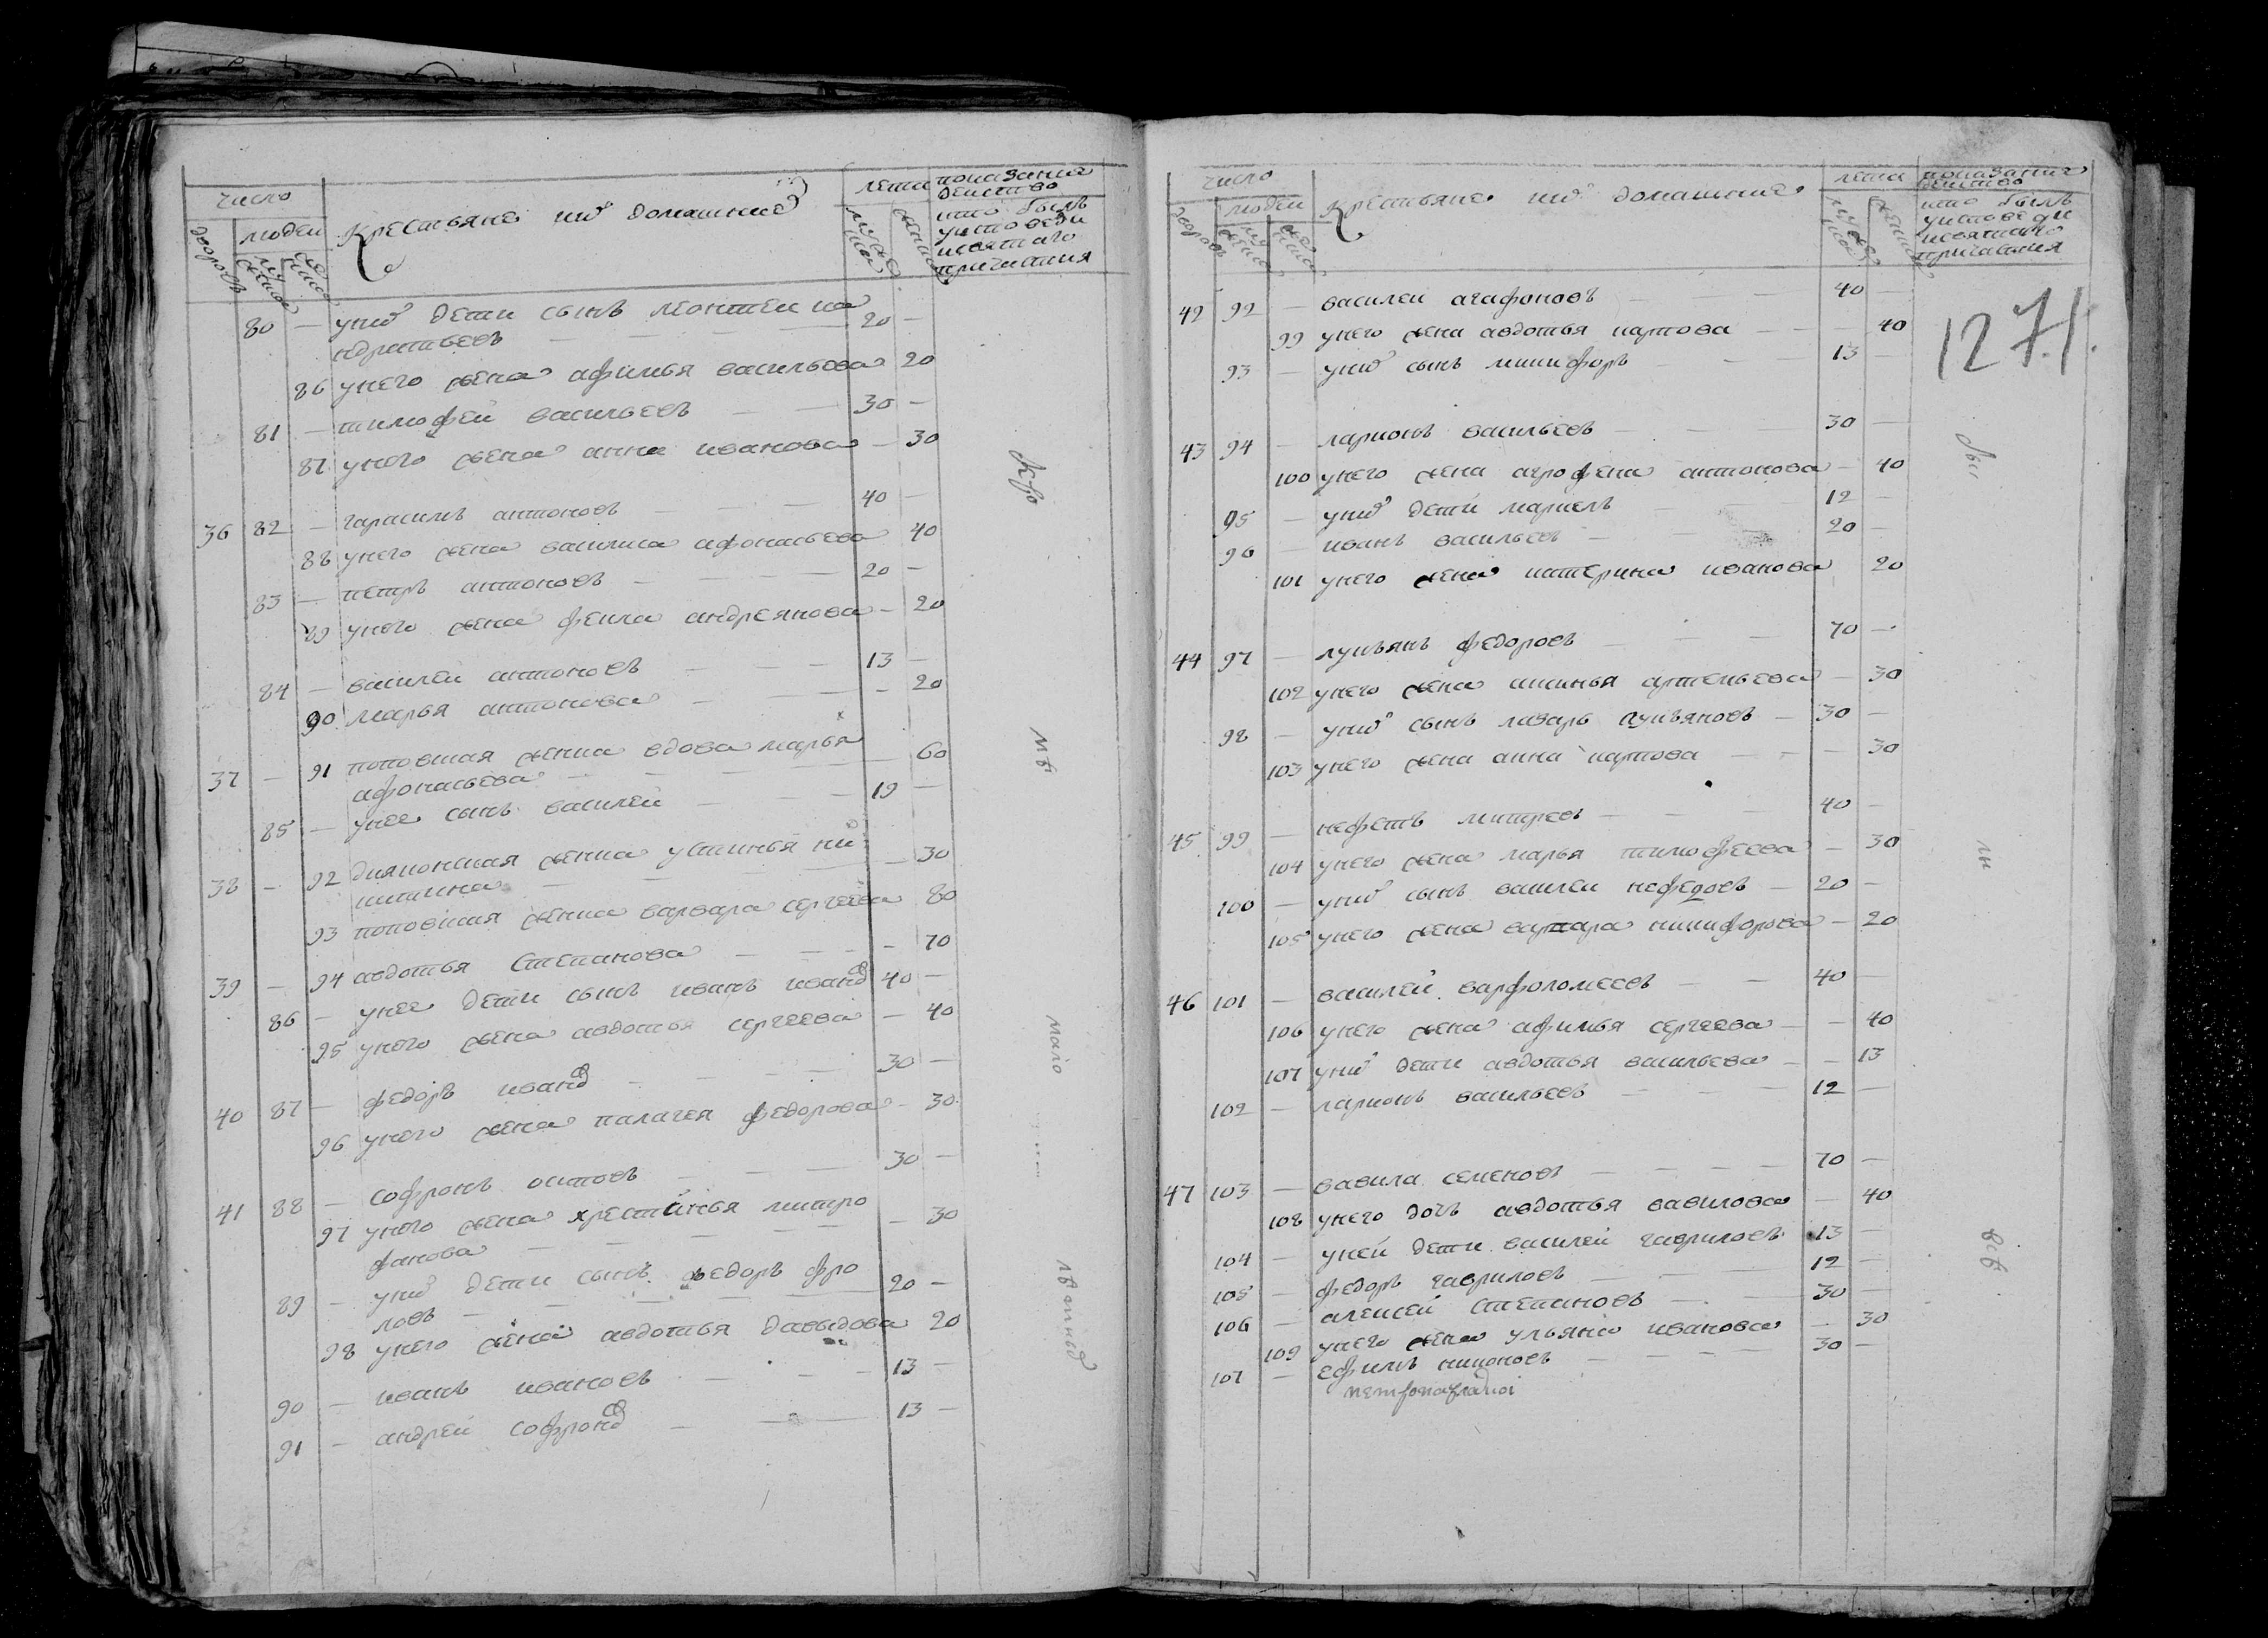 число
дворовъ
людеи
Крестьяне ихъ домашние
лета
показание
действо
кто былъ
уисповеди
исвятаго
причастия
80 — унихъ дети сынъ леонтеи ка
ндратьевъ — 20 —
86 унего жена афимья васильева 20
81 — тимофей васильевъ — 30 —
87 унего жена анна иванова — 30
36 82 — гарасимъ антоновъ — 40 —
88 унего жена василиса афонасьева 40
83 — петръ антоновъ — 20 —
89 унего жена фекла андреянова — 20
84 — василей антоновъ — 13 —
90 марья антонова — 20
37 — 91 поповская женка вдова марья
афонасьева — 60
85 — унее сынъ василей — 19 —
38 — 92 дияконская женка устинья ни
китина — 30
93 поповская женка варвара сергеева 80
39 — 94 авдотья степанова — 70
86 — унее дети сынъ иванъ ивановъ 40 —
95 унего жена авдотья сергеева — 40
40 87 — федоръ ивановъ — 30 —
96 унего жена палагея федорова — 30
41 88 — софронъ осиповъ — 30 —
97 унего жена хрестинья митро
фанова — 30
89 — унихъ дети сынъ федоръ фро
ловъ — 20 —
98 унего жена авдотья давыдова 20
90 — иванъ ивановъ — 13 —
91 — андрей софроновъ — 13 —
число
дворовъ
людеи
Крестьяне ихъ домашние
лета
показание
действо
кто былъ
уисповеди
исвятаго
причастия
1271.
42 92 — василеи агафоновъ — 40 —
99 унего жена авдотья карпова — 40
93 — унихъ сынъ никифоръ — 13 —
43 94 — ларионъ васильевъ — 30 —
100 унего жена агрофена антонова — 40
95 — унихъ дети маркелъ — 12 —
96 — иванъ васильевъ — 20 —
101 унего жена катерина иванова 20
44 97 — лукьянъ федоровъ — 70 —
102 унего жена аксинья артемьева — 30
98 — унихъ сынъ лазарь лукьяновъ — 30 —
103 унего жена анна карпова — 30
45 99 — нефетъ — 40 —
104 унего жена марья тимофеева — 30
100 — унихъ сынъ василеи нефедовъ — 20 —
105 унего жена варвара никифорова — 20
46 101 — василей варфоломеевъ — 40 —
106 унего жена афимья сергеева — 40
107 унихъ дети авдотья васильева — 13
102 — ларионъ васильевъ — 12 —
47 103 — вавила семеновъ — 70 —
108 унего дочь авдотья вавилова — 40
104 — уней дети василей гавриловъ 13 —
105 — федоръ гавриловъ — 12 —
106 — алексей степановъ — 30 —
109 унего жена ульяна иванова — 30
107 — ефимъ никоновъ — 30 —